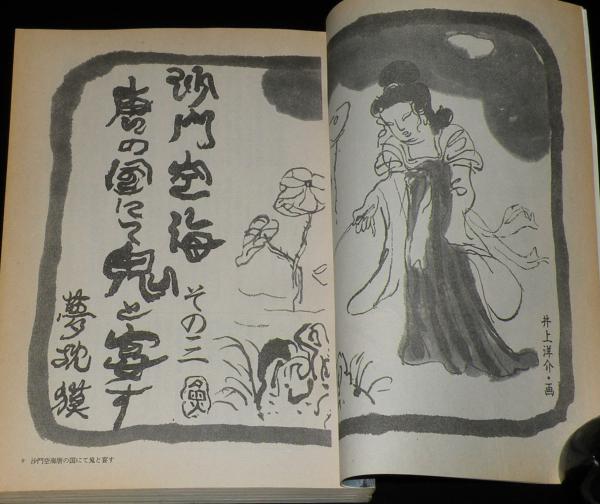 沙門空海 その三
唐の国にて鬼と宴す
夢枕獏
井上洋介・画
9 沙門空海唐の国にて鬼と宴す